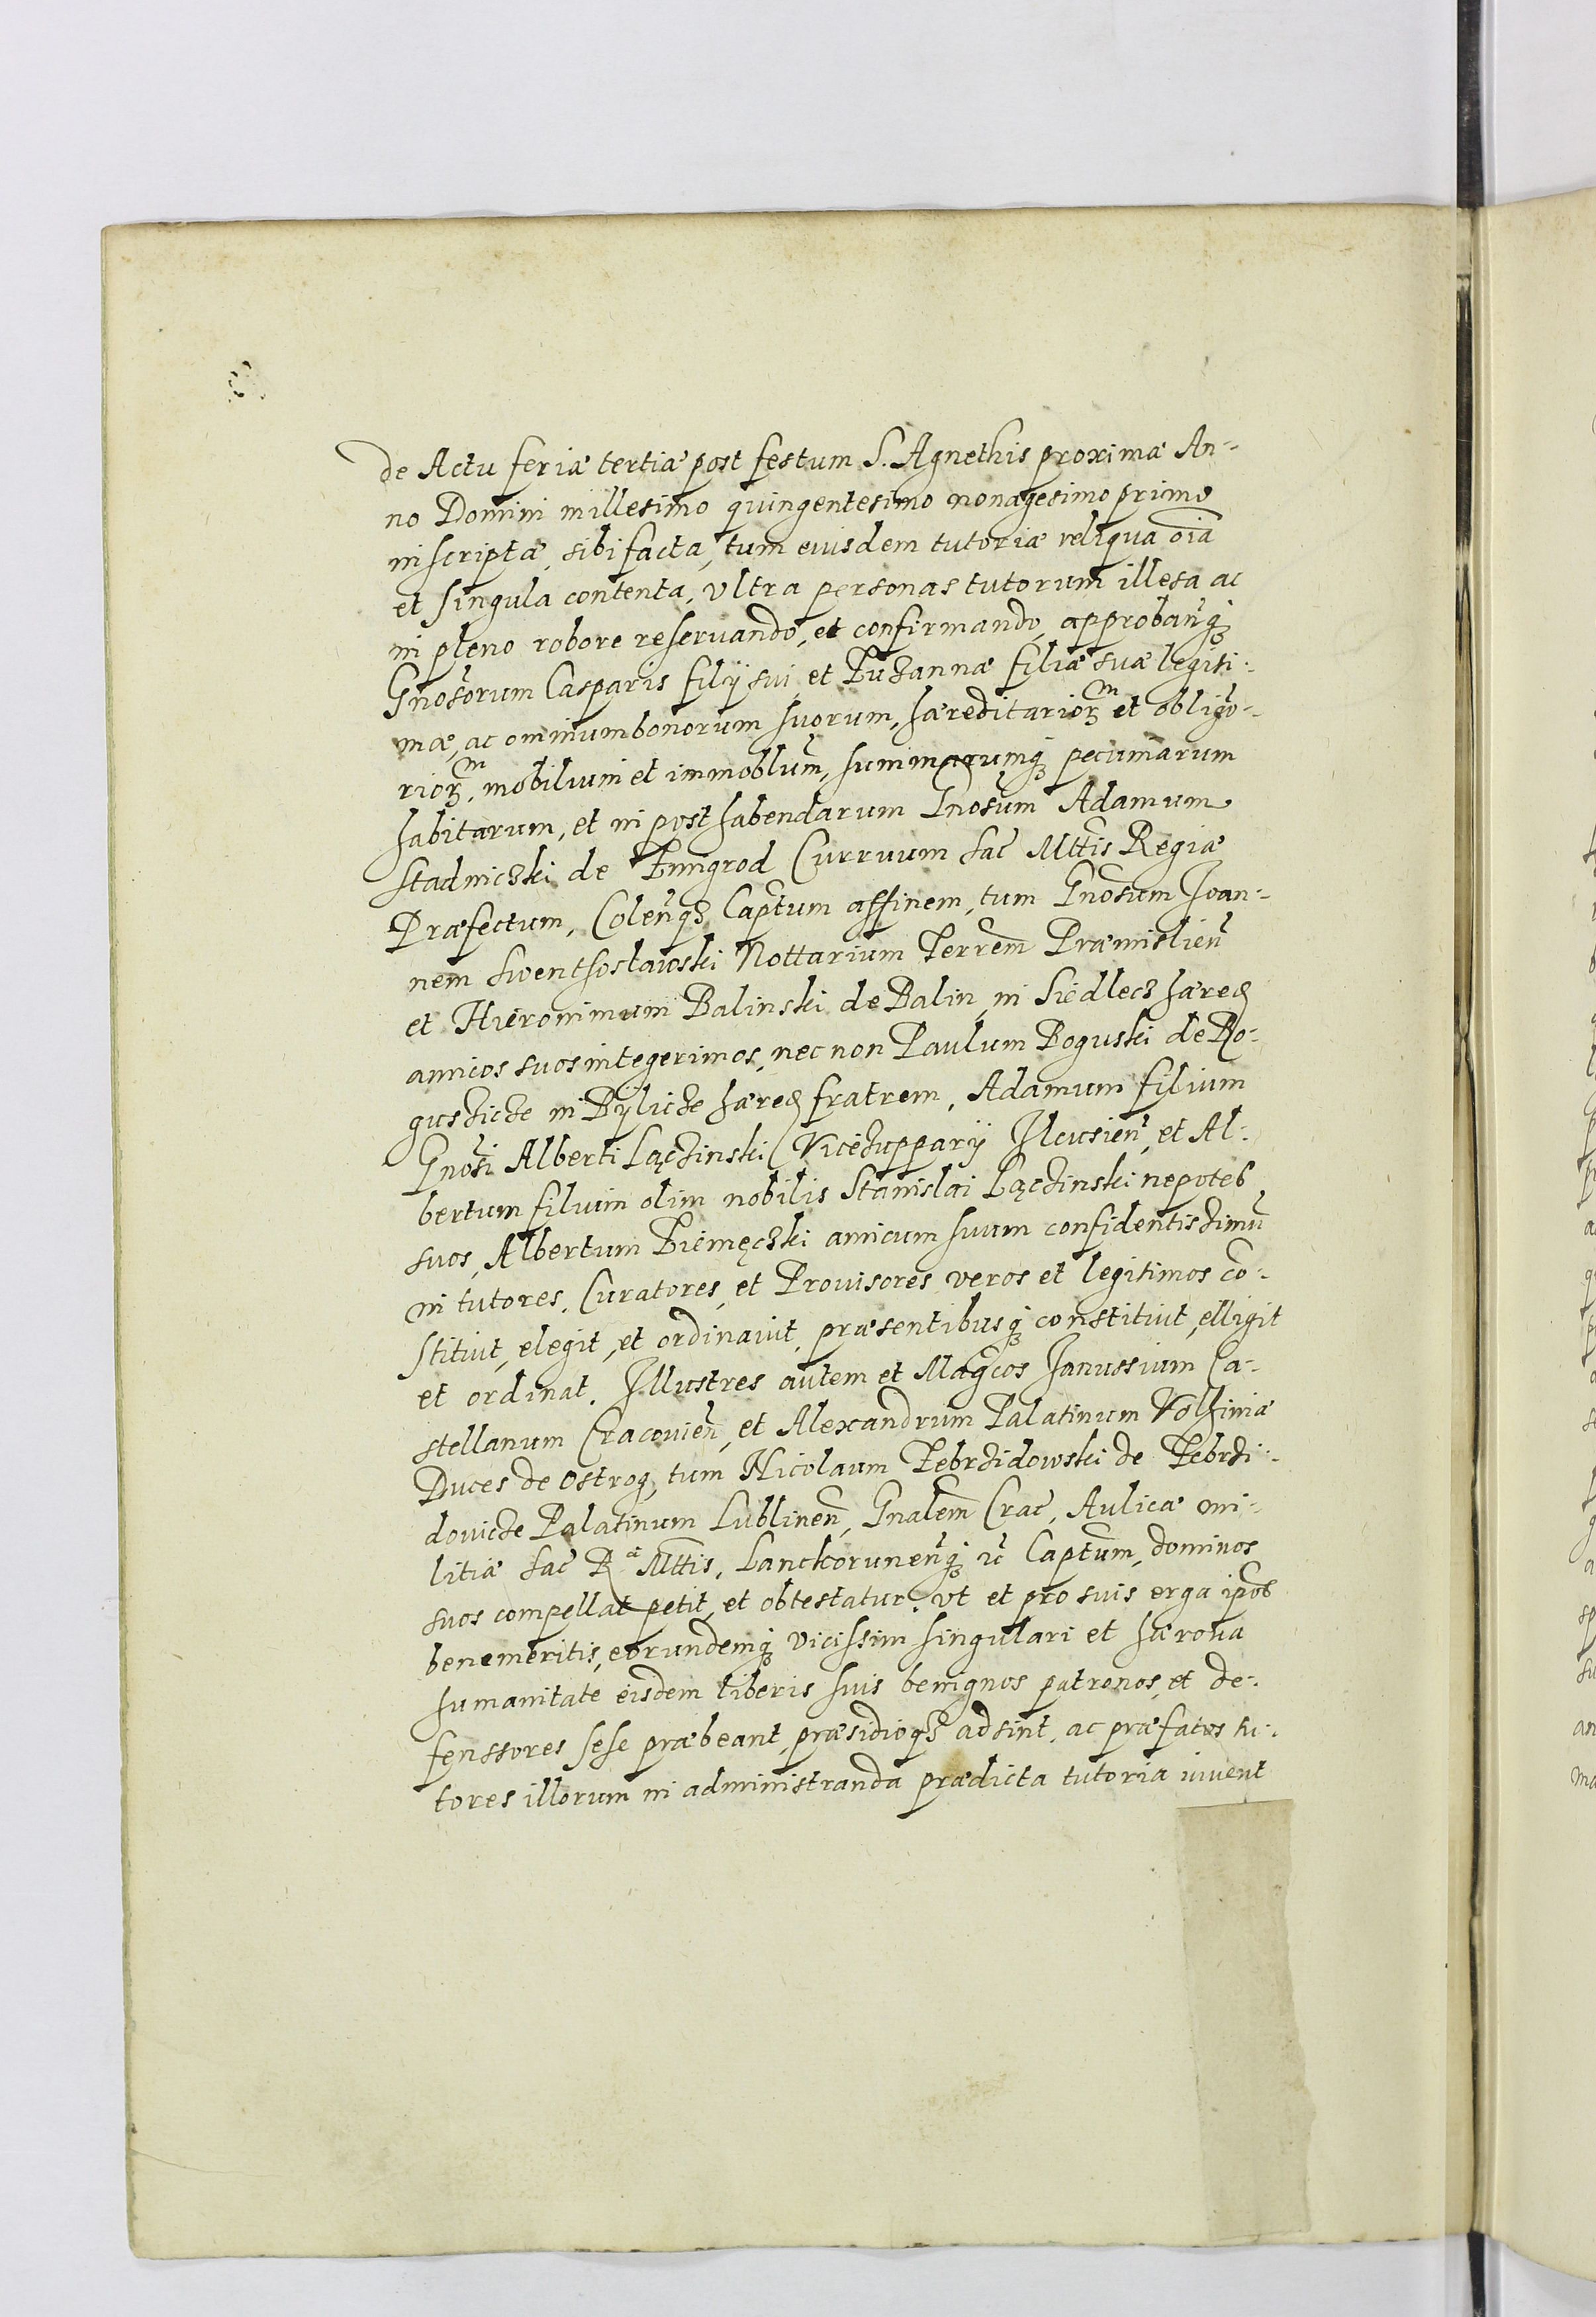 de Actu feriæ tertiæ post festum S. Agnethis proximæ An-
no Domini millesimo quingentesimo nonagesimo primo
inscriptæ, sibi facta, tum eiusdem tutoriæ reliqua oīā
et singula contenta, vltra personas tutorum illesa ac
in pleno robore reservando, et confirmando, approbanq̃ꝫ
Gnosorum Casparis filÿ sui, et Zuzannæ filiæ suæ legiti-
mæ, ac omnium bonorum suorum, hæreditarioꝝᵐ et obligo-
rioꝝᵐ, mobilium et immoblum̃, summarumqꝫ pecuniarum
habitarum, et in post habendarum Gnosum Adamum
Stadniczki de Zmigrod Curruum Sac̃ Mttis Regiæ
Præfectum, Colen̄qꝫ Captum affinem, tum Gnosum Joan-
nem Swenthoslawski Nottarium Terrem̃ Præmislien̄
et Hieronimum Balinski de Balin, in Siedlecz hæređ
amicos suos integerimos, nec non Paulum Boguski de Bo-
guszicze in Byliche hæređ fratrem, Adamum filium
Gnosi Alberti Lączinski Vicezupparÿ Ilcusien̄, et Al-
bertum filium olim nobilis Stanislai Lączinski nepotes
suos, Albertum Ziemęczki amicum suum confidentiszimū
in tutores, Curatores, et Prouisores veros et legitimos cō-
stituit, elegit, et ordinauit, præsentibusqꝫ constituit, elligit
et ordinat. Illustres autem et Mag̃cos Janussium Ca-
stellanum Cracouien̄, et Alexandrum Palatinum Volhiniæ
Duces de Ostrog, tum Nicolaum Zebrzidowski de Zebrzi-
dovicze Palatinum Lublinen̄, Gnalem̃ Crac̃, Aulicæ mi-
litiæ Sac̃ Rᵃᵉ Mttis, Lanckorunen̄qꝫ ic̃ Captum, dominos
suos compellat petit, et obtestatur, vt et pro suis erga ipōs
benemeritis, eorundemqꝫ vicissim singulari et hæroua
humanitate eisdem liberis suis benignos patronos, et de-
fenssores sese præbeant, præsidioqꝫ adsint, ac præfatos tu-
tores illorum in administranda prædicta tutoria iuvent